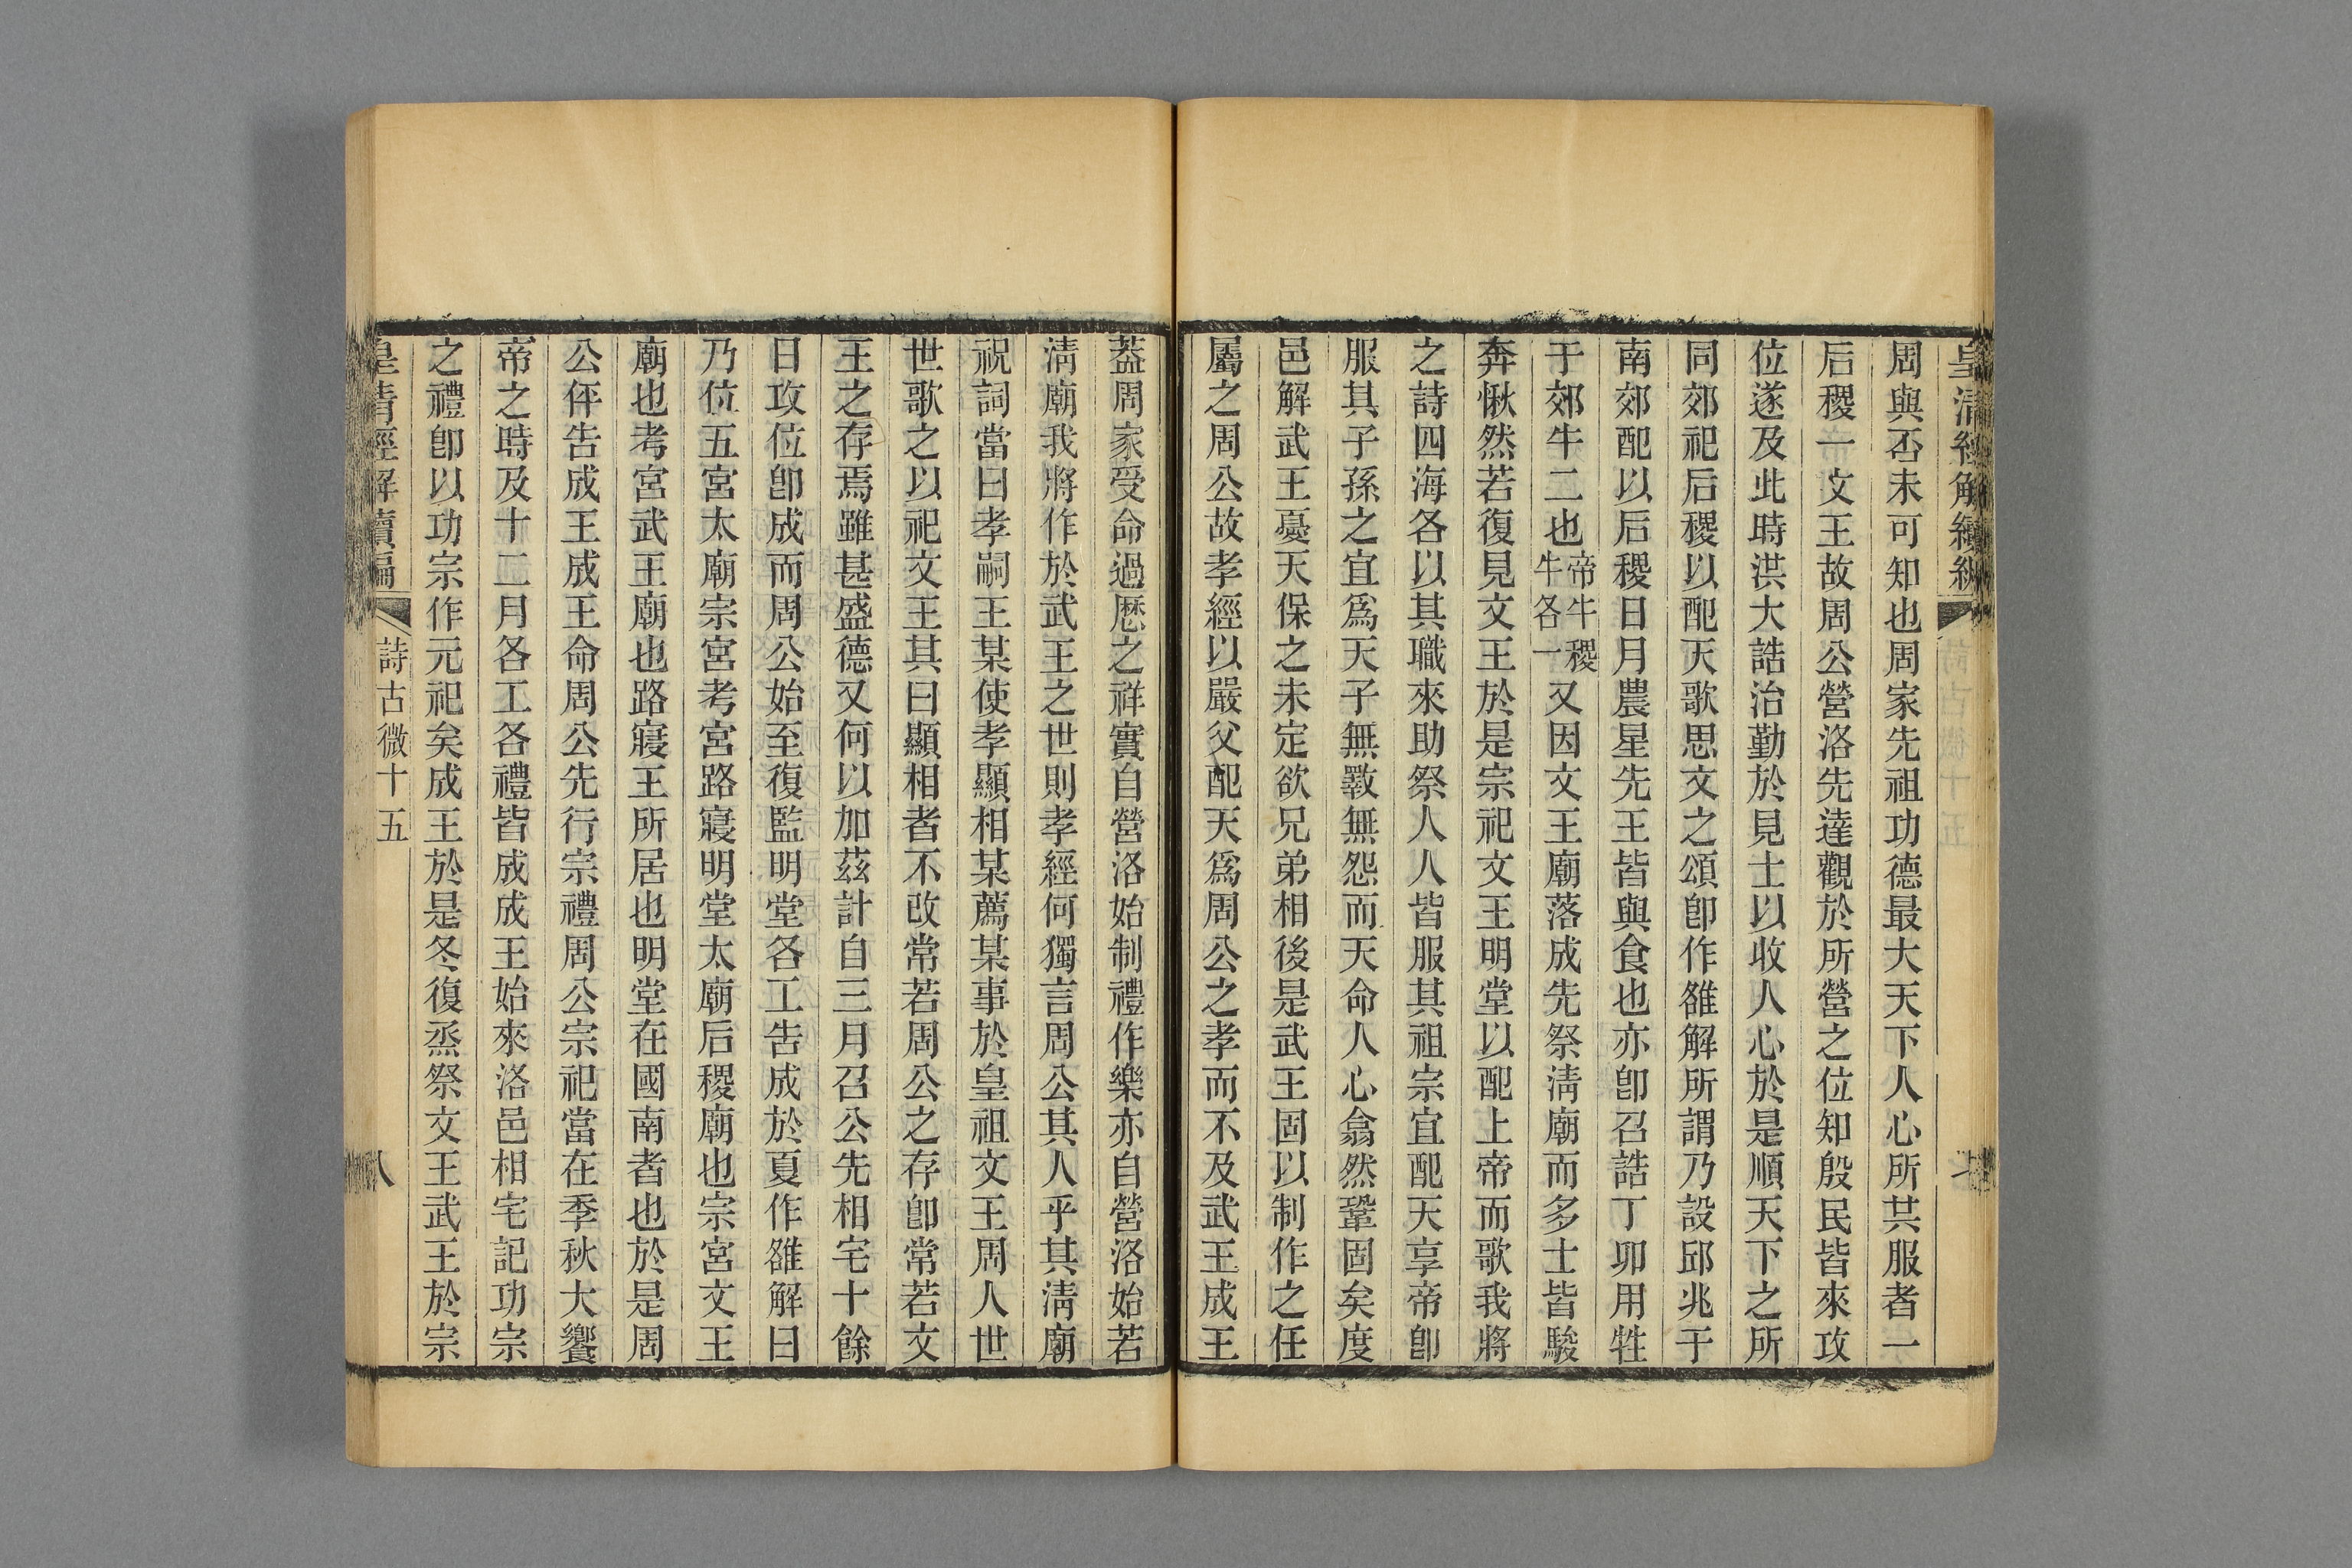 皇清經解續編
七
周與否未可知也周家先祖功德最大天下人心所共服者一
后稷一文王故周公營洛先達觀於所營之位知殷民皆來攻
位遂及此時洪大誥治勤於見士以收人心於是順天下之所
同郊祀后稷以配天歌思文之頌卽作雒解所謂乃設邱兆于
南郊配以后稷日月農星先王皆與食也亦卽召誥丁卯用牲
于郊牛二也帝牛稷牛各一又因文王廟落成先祭淸廟而多士皆駿
奔愀然若復見文王於是宗祀文王明堂以配上帝而歌我將
之詩四海各以其職來助祭人人皆服其祖宗宜配天享帝卽
服其子孫之宜爲天子無斁無怨而天命人心翕然鞏固矣度
邑解武王憂天保之未定欲兄弟相後是武王固以制作之任
屬之周公故孝經以嚴父配天爲周公之孝而不及武王成王
葢周家受命過厯之祥實自營洛始制禮作樂亦自營洛始若
淸廟我將作於武王之世則孝經何獨言周公其人乎其淸廟
祝詞當曰孝嗣王某使孝顯相某薦某事於皇祖文王周人世
世歌之以祀文王其曰顯相者不改常若周公之存卽常若文
王之存焉雖甚盛德又何以加茲計自三月召公先相宅十餘
日攻位卽成而周公始至復監明堂各工告成於夏作雒解曰
乃位五宮太廟宗宮考宮路寢明堂太廟后稷廟也宗宮文王
廟也考宮武王廟也路寢王所居也明堂在國南者也於是周
公伻告成王成王命周公先行宗禮周公宗祀當在季秋大饗
帝之時及十二月各工各禮皆成成王始來洛邑相宅記功宗
之禮卽以功宗作元祀矣成王於是冬復烝祭文王武王於宗
皇清經解續編
詩古微十五
八